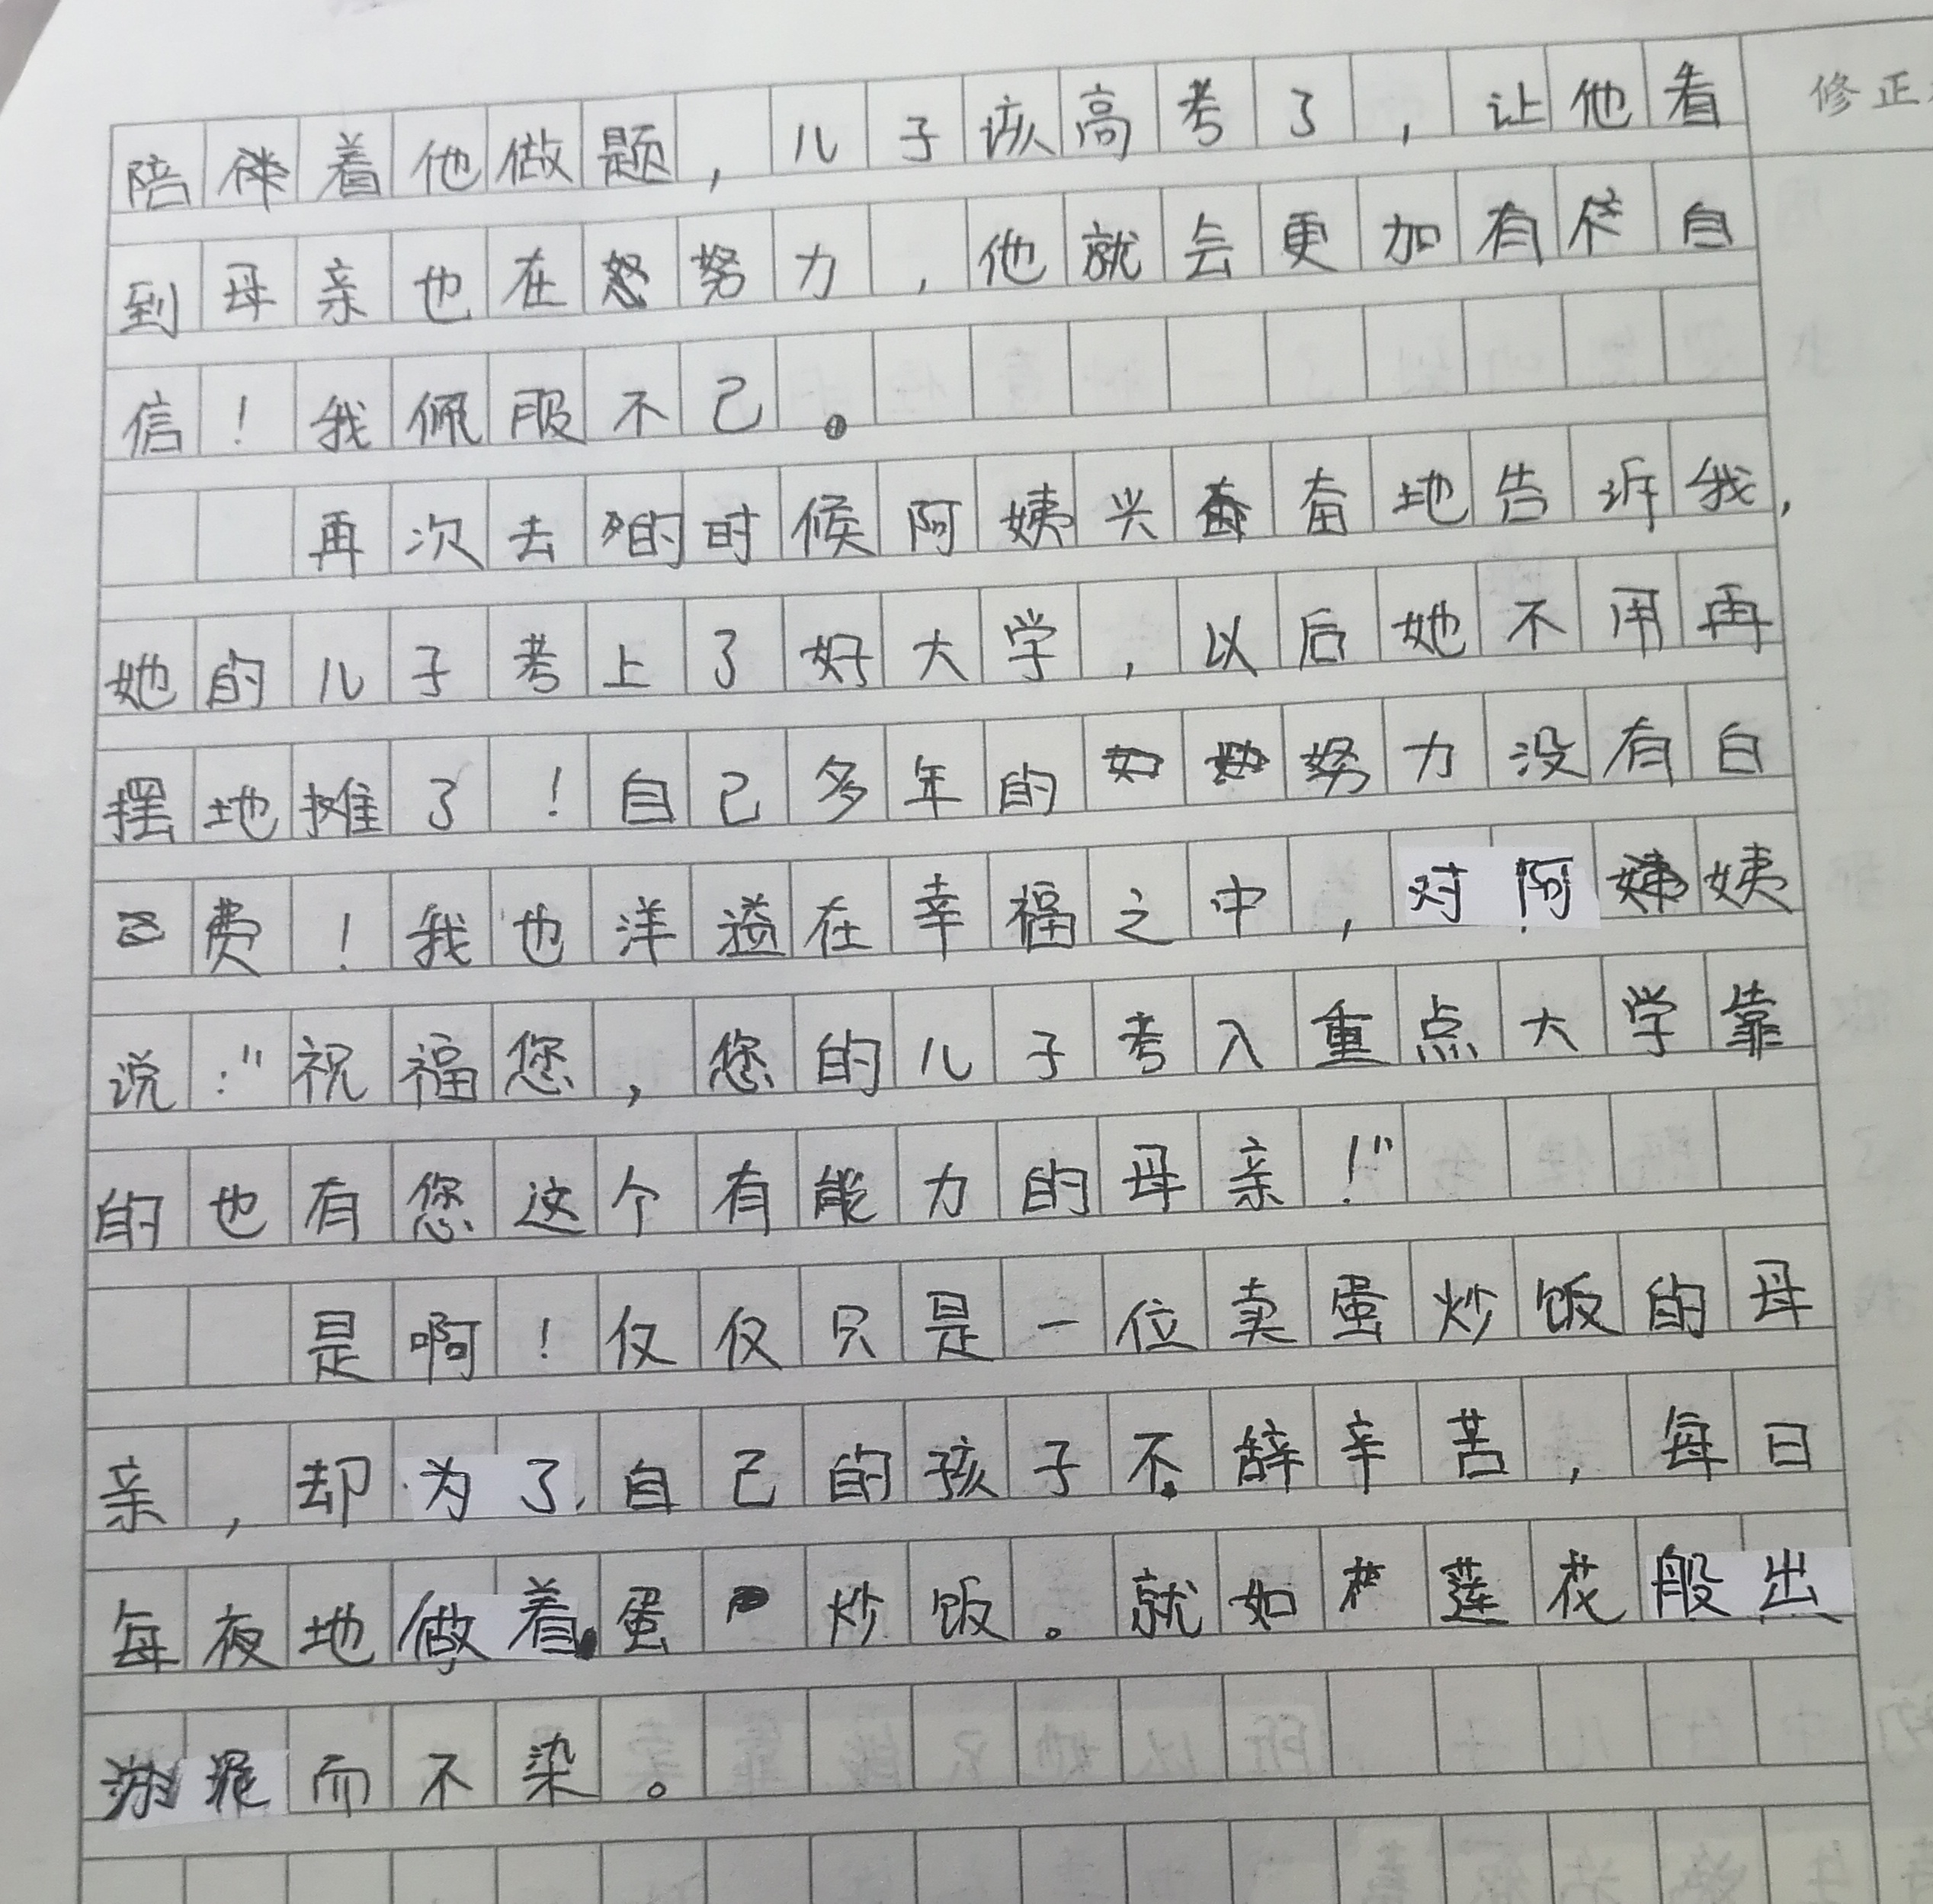 修正
陪伴着他做题，儿子该高考了，让他看
到母亲也在努力，他就会更加有自
信！我佩服不己。
再次去的时候阿姨兴奋地告诉我，
她的儿子考上了好大学，以后她不用再
摆地摊了！自己多年的努力没有白
费！我也洋溢在幸福之中，对阿姨
说：“祝福您，您的儿子考入重点大学靠
的也有您这个有能力的母亲！”
是啊！仅仅只是一位卖蛋炒饭的母
亲，却为了自己的孩子不辞辛苦，每日
每夜地做着蛋炒饭。就如莲花般出
淤泥而不染。